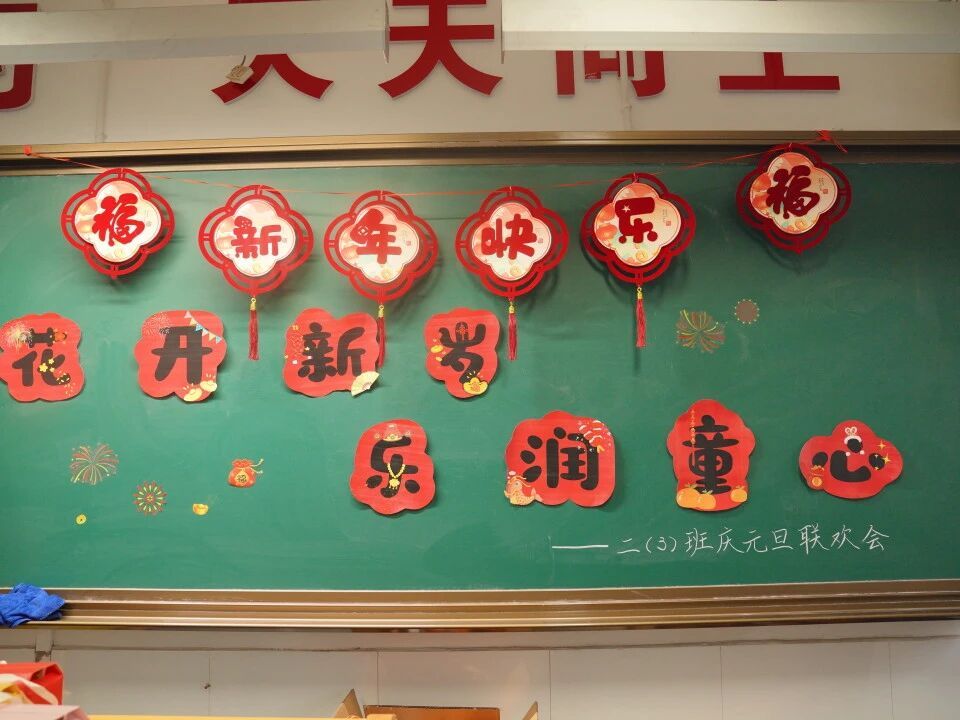 天天向上
福新年快乐福
花开新岁
乐润童心
——二(3)班庆元旦联欢会